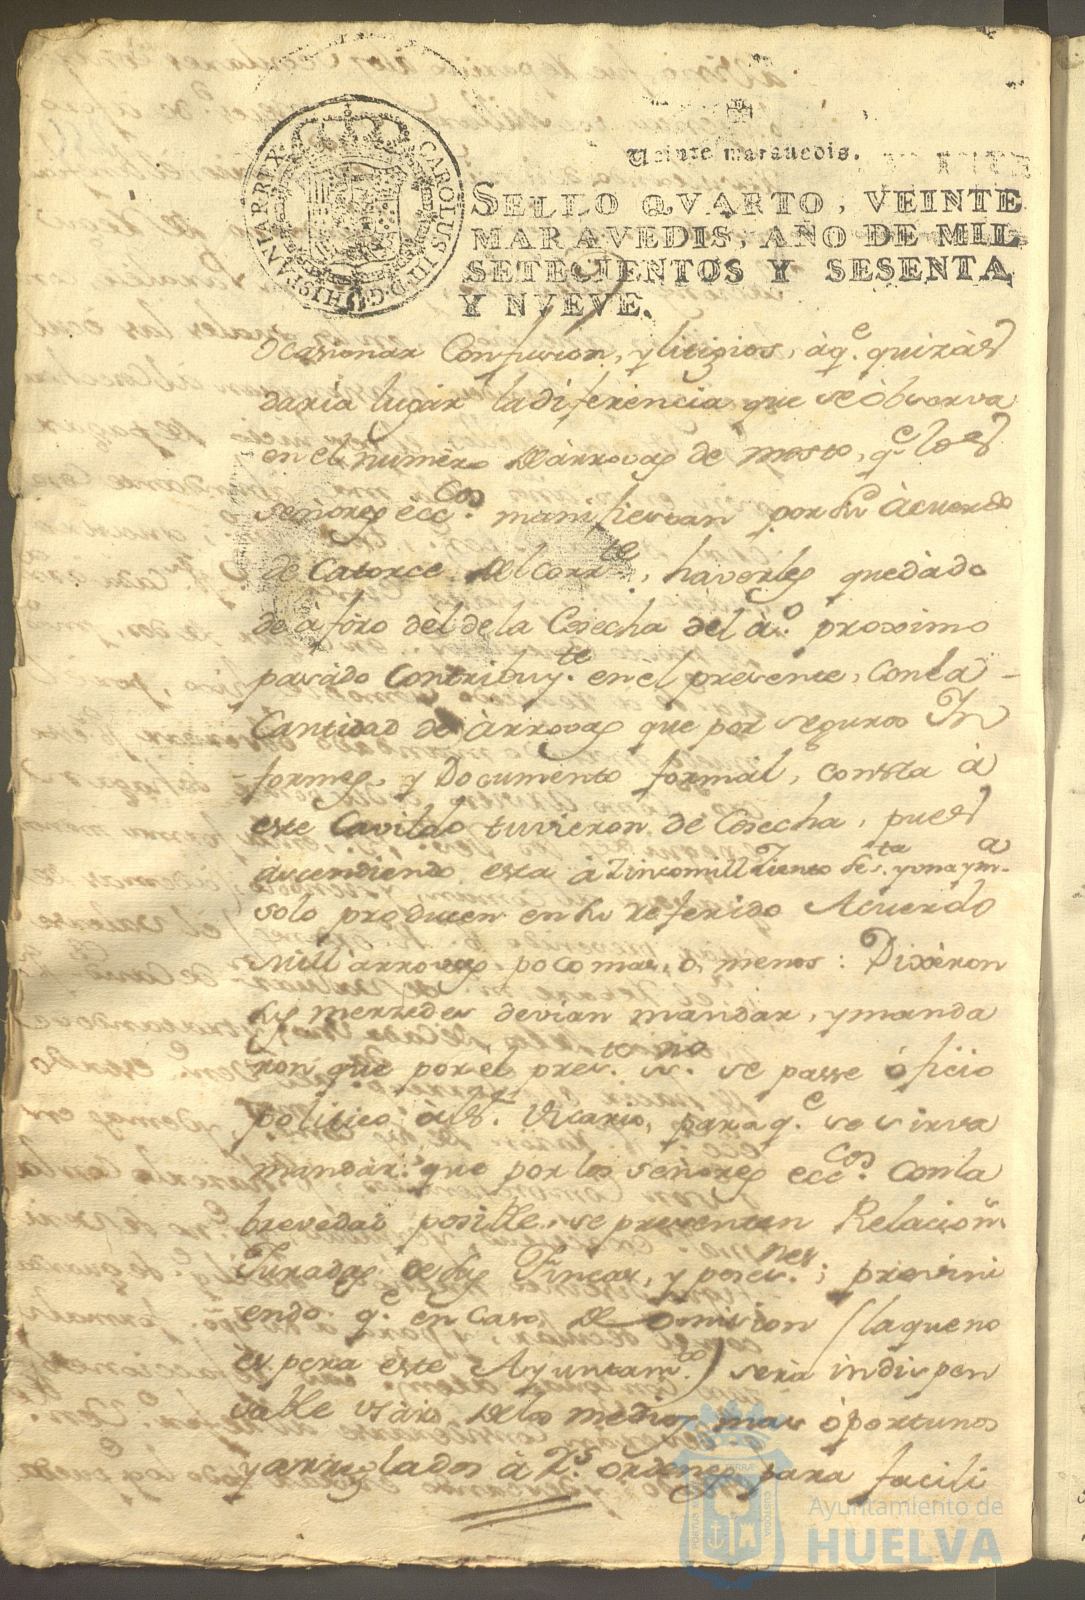 Veinte maravedis.
SELLO QVARTO, VEINTE
MARAVEDIS, AÑO DE MIL
SETECIENTOS Y SESENTA
Y NVEVE.
CAROLUS III D G HISPANIAR REX
ocasionar Confusion, y litigios, àq.e quizàs
daria lugar la diferencia que se observa
en el numero de àrrovas de mosto, q.e los
señores ecc.cos manifiestan por su Àcuerdo
de Catorce del corr.te, haverles quedàdo
de aforo del de la Cosecha del à.o proximo
pasàdo Contribuy.te en el presente, con la
Cantidad de àrrovas que por seguros In
formes, y Documento formàl, consta à
este Cavildo tuvieron de Cosecha, pues
àscendiendo esta à Zincomill Ziento se.ta y una y m.a
solo producen en su referido Acuerdo
mill àrrovas poco mas, o menos: Dixeron
sus merzedes devian mandar, y manda
ron que por el pres.te ss.no se passe óficio
politico à s.r Vicario, para q.e se sirva
mandàr que por los señores ecc.cos con la
brevedad posible, se presenten Relacion.s
Juradas de sus Fincas, y poses.nes; previni
endo q.e en caso de omision (la que no
espera este Ayuntam.to) serà indispen
sable usàr de los medios mas óportunos
y arreglados à R.s ordenes para facili
Ayuntamiento de
HUELVA